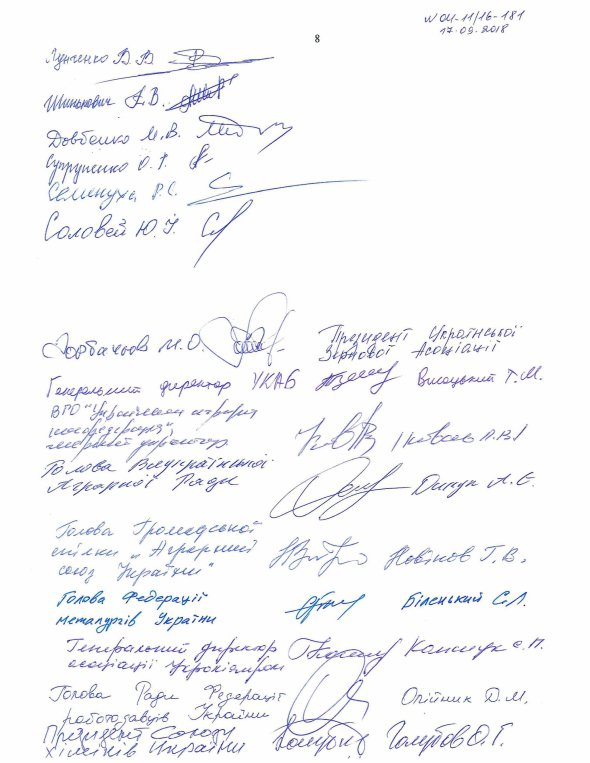 N 04-11/16-181
17.09.2018
8
Лунченко В.В
Шинькович А.В.
Довбенко М.В.
Супруненко О.І.
Семенуха Р.С.
Соловей Ю.І.
Горбачьов М.О. Президент Української
Зернової Асоціації
Генеральний директор УКАБ Висоцький Т.М.
ВГО "Українська аграрна
конфедерація",
генеральний директор
Голова Всеукраїнської
Аграрної Ради Дикун А.Є.
Голова Громадської
спілки „Аграрний
союз України" Новіков Г.В.
Голова Федерації
металургів України Біленький С.Л.
Генеральний директор
асоціації Укркокскім
Голова Ради Федерації
роботодавців України Олійник Д.М.
Президент Союзу
Хіміків України Голубов О.Г.